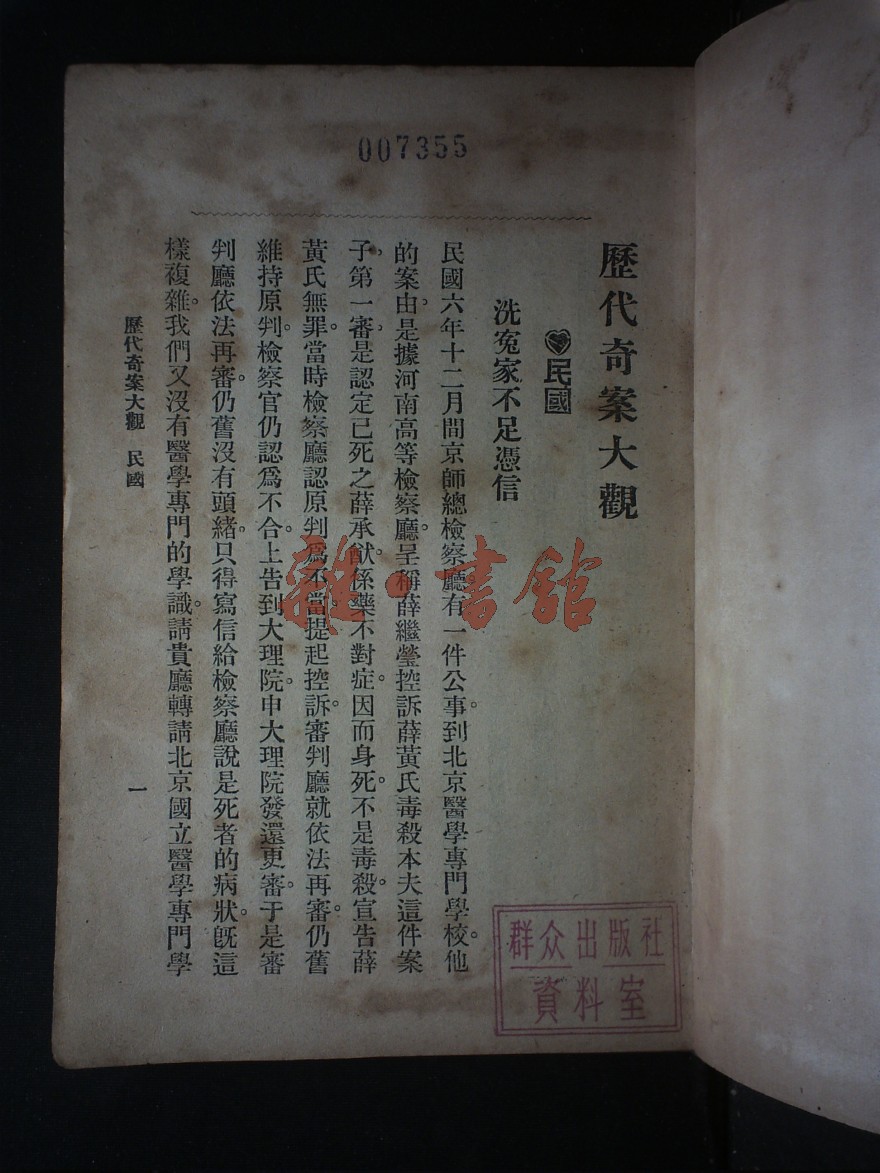 007355
歷代奇案大觀
民國
洗冤家不足憑信
民國六年十二月間京師總檢察廳有一件公事。到北京醫學專門學校。他
的案由。是據河南高等檢察廳。呈稱薛繼瑩控訴薛黃氏毒殺本夫這件案
子。第一審。是認定已死之薛承猷。係藥不對症。因而身死。不是毒殺。宣告薛
黃氏無罪。當時檢察廳認原判爲不當。提起控訴。審判廳就依法再審。仍舊
維持原判。檢察官仍認爲不合。上告到大理院。申大理院發還更審。于是審
判廳依法再審。仍舊沒有頭緒。只得寫信給檢察廳說是死者的病狀。既這
樣複雜。我們又沒有醫學專門的學識。請貴廳轉請北京國立醫學專門學
歷代奇案大觀 民國
一
雜·書館
群众出版社
資料室